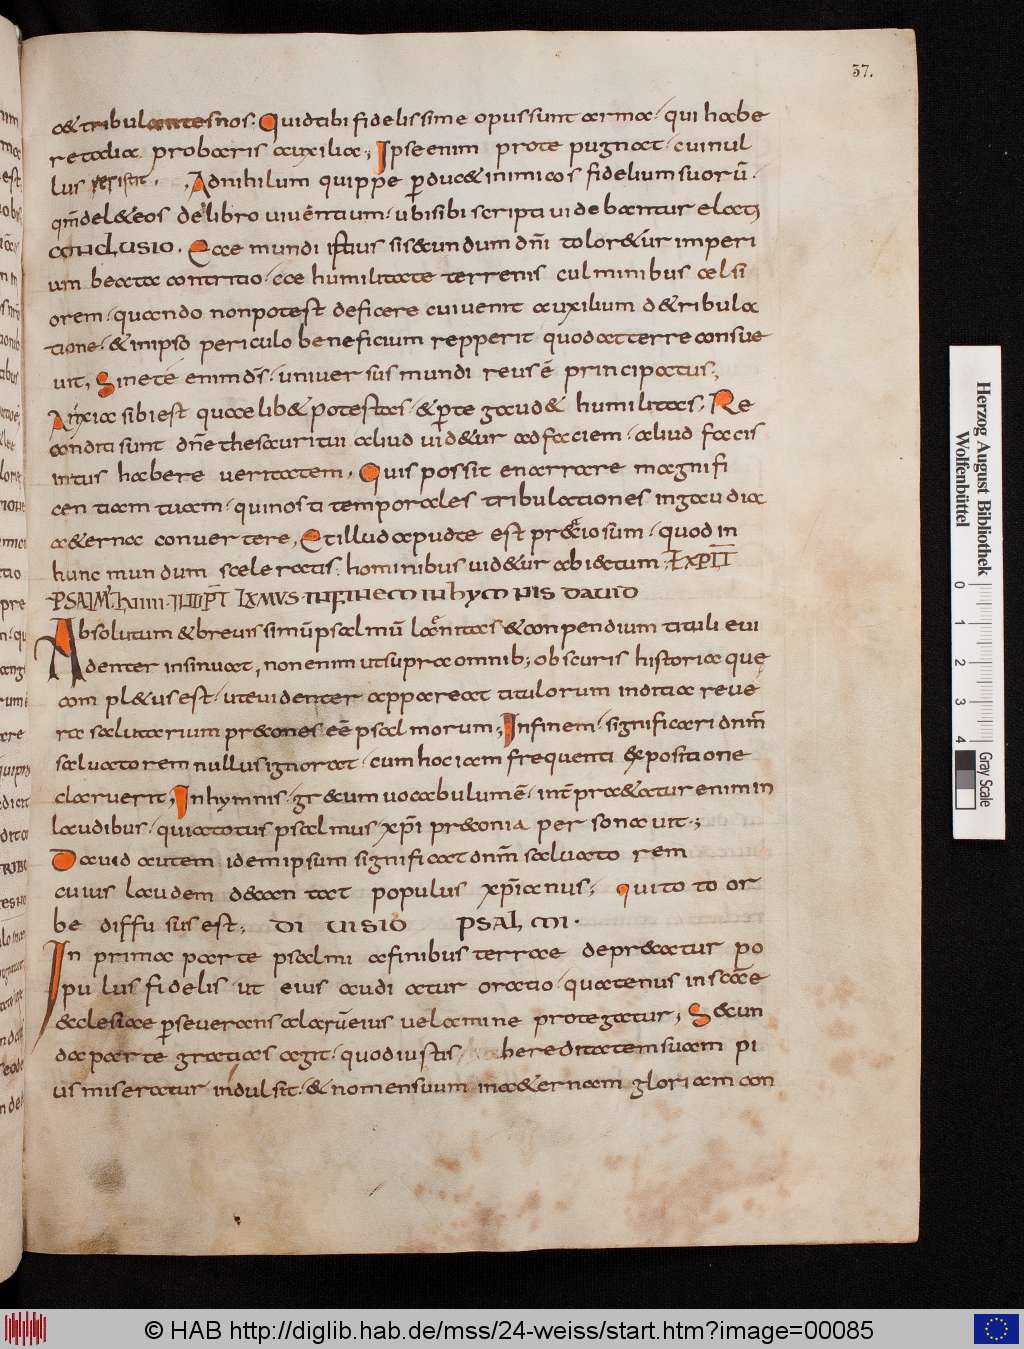 37.
& tribulantes nos. Quid tibi fidelissime opus sunt arma. qui habe
re talia probaris auxilia; Ipse enim pro te pugnat. cui nul
lus resistit. Ad nihilum quippe ꝑduc& inimicos fidelium suorū.
qm̄ del& eos de libro viventium. ubi sibi scripti videbantur electi;
conclusio. Ecce mundi istius s&cundum dn̄i tolor&ur imperi
um beata contritio. ecce humilitate terrenis culminibus celsi
orem. quando non potest deficere cui venit auxilium d& ribula
tione. & in ipso periculo beneficium repperit quod at terre consue
vit, Sine te enim ds̄. universus mundi reus ē principatus;
Anxia sibi est quaelib& potestas. & ꝑ te gaud& humilitas, Re
condita sunt dn̄e thesauri tui aliud vid&ur ad faciem. aliud facis
intus habere veritatem, Quis possit enarrare magnifi
centiam tuam. qui nos ti temporales tribulationes in gaudia
a&erna convertere, Et illud apud te est praetiosum. quod in
hunc mundum sceleratis hominibus vid&ur abiectum. EXPLĪT
PSALM' LVIIII INCIPT LXMUS IN FINEM IN HYMNIS DAVID
Absolutum & brevissimū psalmū lenitas & conpendium tituli evi
denter insinuat, non enim ut supra omnib; obscuris historia que
cam pl&us est. ut evidenter appareat titulorum inditia reve
ra salutarium praecones eē psalmorum; In finem. significari dnm̄
salvatorem nullus ignorat. cum hoc iam frequenti expositione
claruerit; In hymnis. grecum vocabulum ē. int̄pra&atur enim in
laudibus. quia totus psalmus xp̄i praeconia personavit.;
David autem idem ipsum significat dnm̄ salvato rem
cuius laudem decantat populus xp̄ianus; qui toto or
be diffusus est; DIVISIO PSALMI.
In prima parte psalmi a finibus terrae depraecatur po
pulus fidelis. ut eius audiatur oratio. quatenus in scāe
&clesiae ꝑseverans alarū eius velamine protegatur; S&cun
da parte gratias agit. quod iustis hereditatem suam pi
us miseratur indulsit. & nomen suum in a&ernam gloriam con
Herzog August Bibliothek
Wolfenbüttel
0 1 2 3 4
Gray Scale
© HAB http://diglib.hab.de/mss/24-weiss/start.htm?image=00085